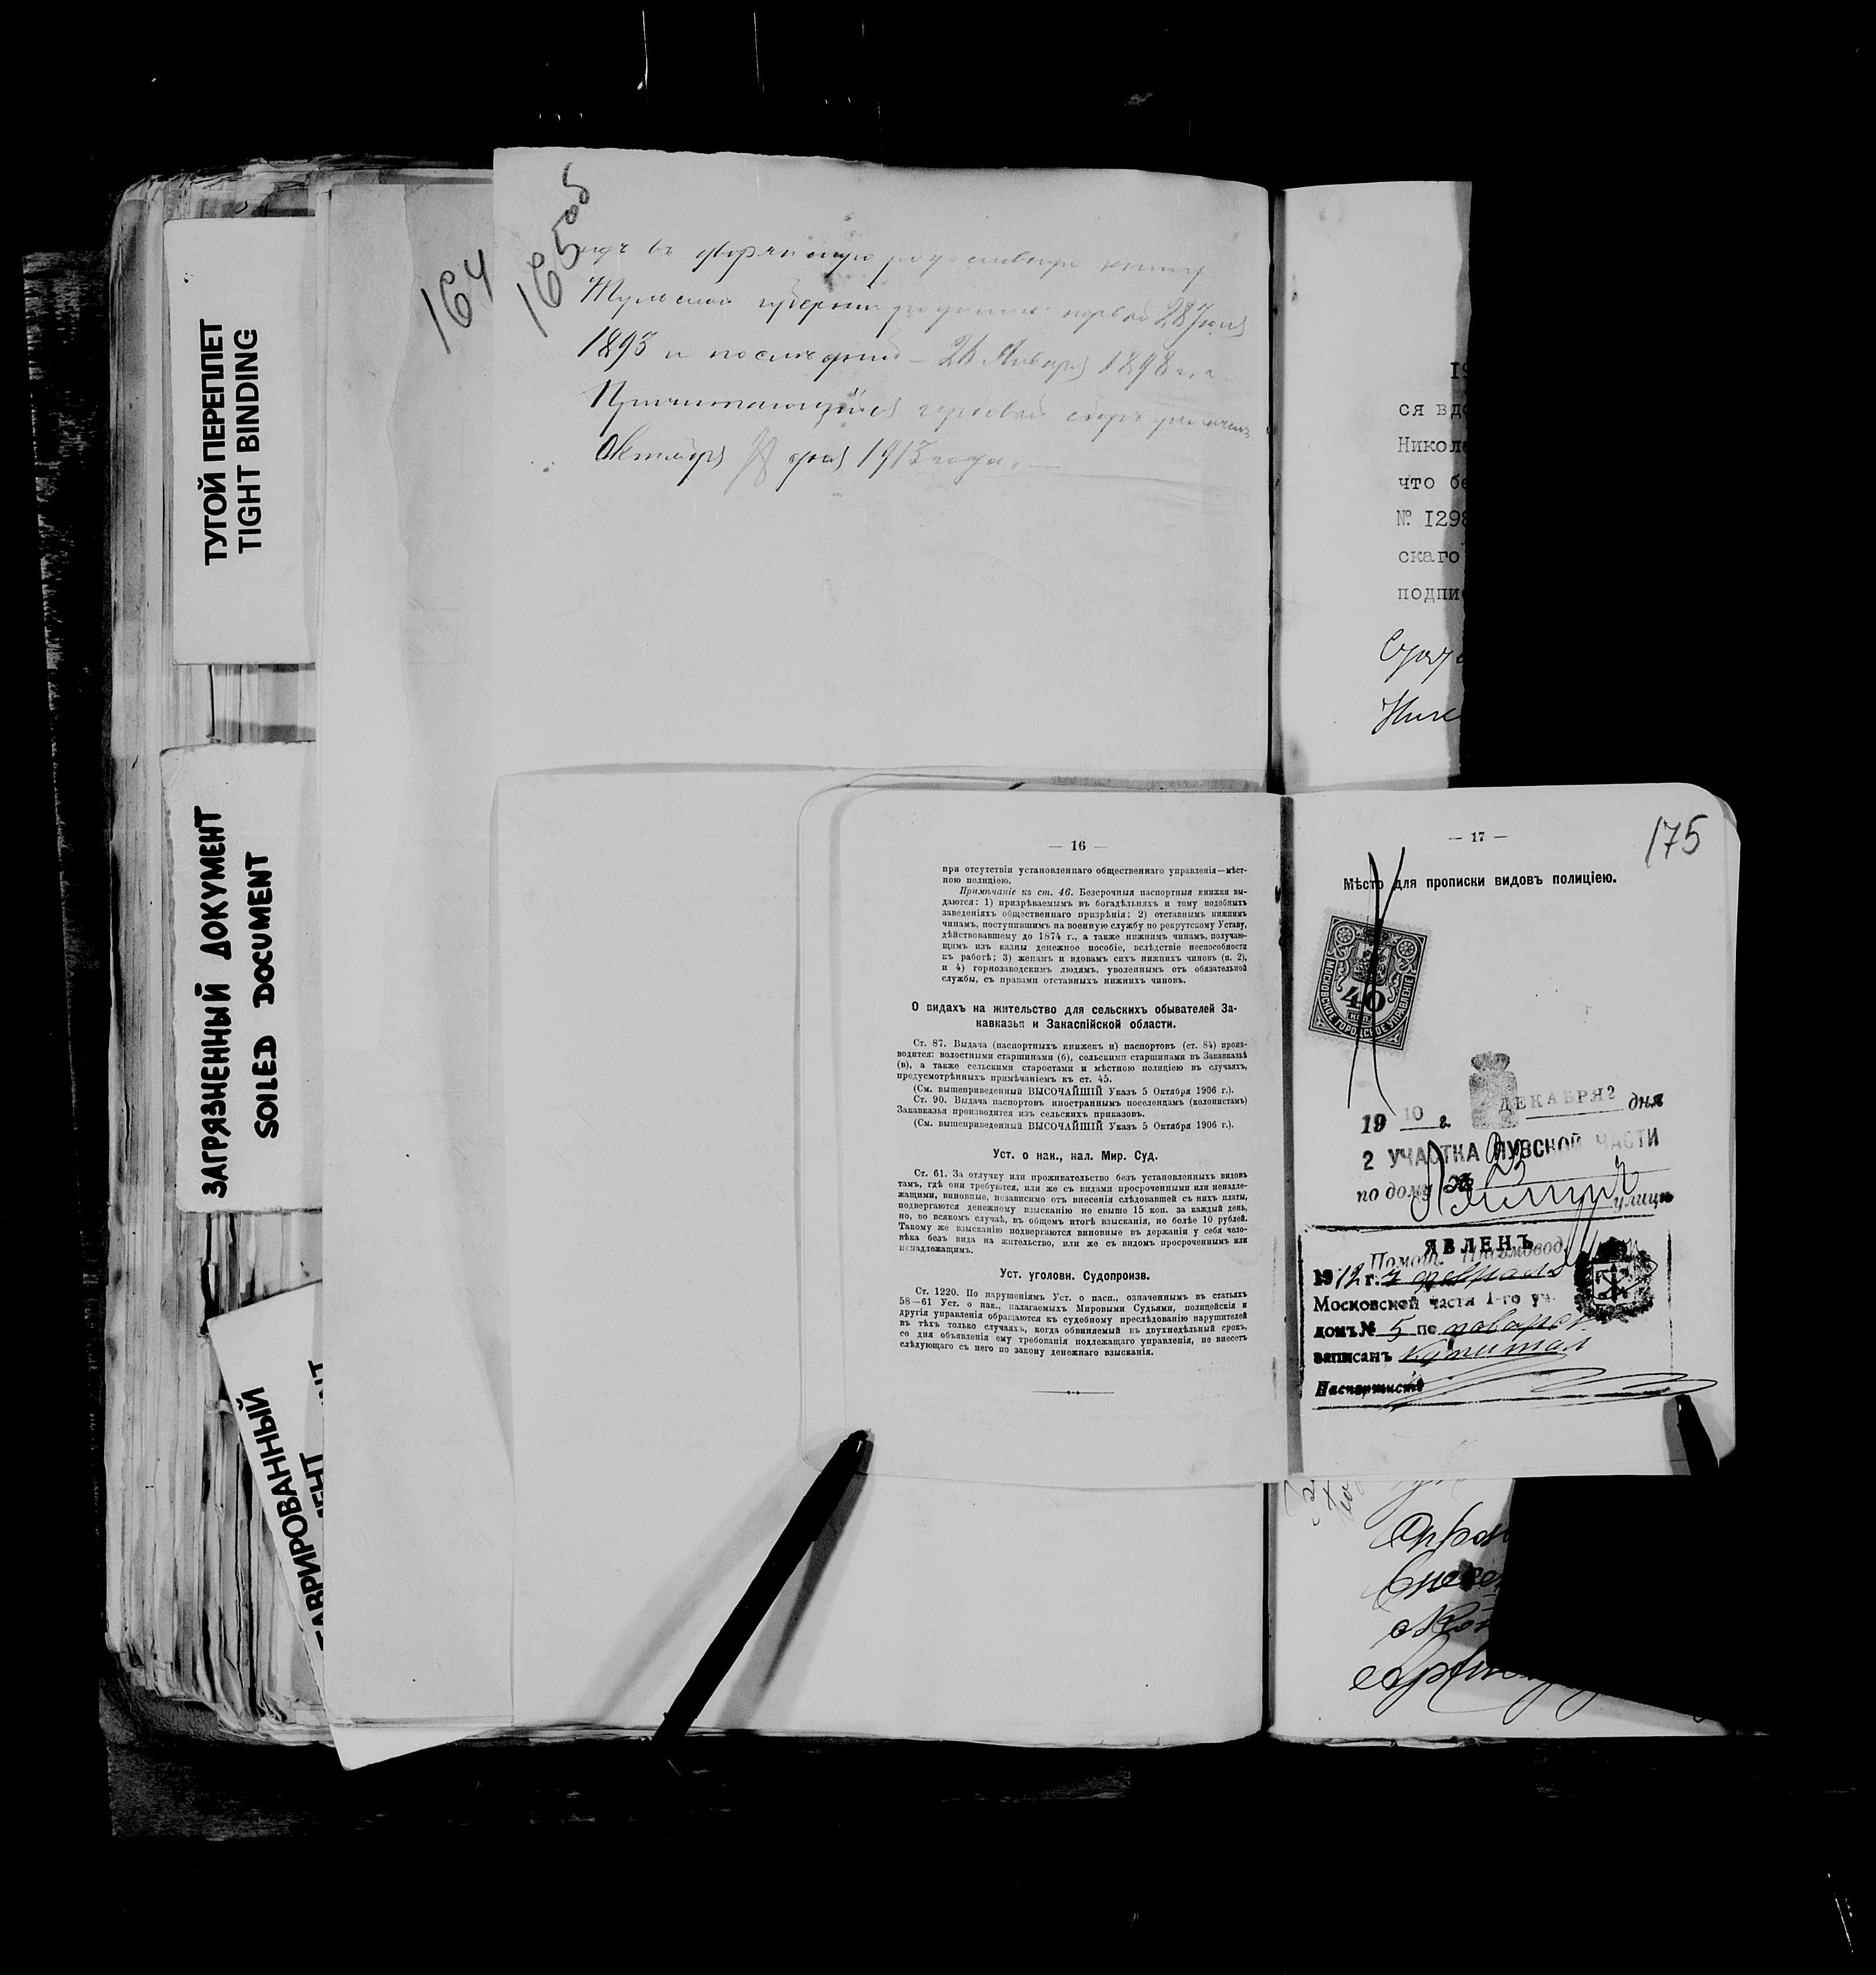 ТУГОЙ ПЕРЕПЛЕТ
TIGHT BINDING
ЗАГРЯЗНЕННЫЙ ДОКУМЕНТ
SOILED DOCUMENT
АВРИРОВАННЫЙ
164
165 об
въ дворянскую родословную книгу
Тульской губерніи первой 28 Іюня
1893 и послѣдній – 26 Января 1898 г.г.
Причитающійся гербовый сборъ уплаченъ
Октября дня 1913 года.
19
ся вдо
Никола
что бе
№ 1298
скаго
подпис
— 16 —
при отсутствіи установленнаго общественнаго управленія—мѣст-
ною полиціею.
Примѣчаніе къ ст. 46. Безсрочныя паспортныя книжки вы-
даются: 1) призрѣваемымъ въ богадѣльняхъ и тому подобныхъ
заведеніяхъ общественнаго призрѣнія; 2) отставнымъ нижнимъ
чинамъ, поступившимъ на военную службу по рекрутскому Уставу,
дѣйствовавшему до 1874 г., а также нижнимъ чинамъ, получаю-
щимъ изъ казны денежное пособіе, вслѣдствіе неспособности
къ работѣ; 3) женамъ и вдовамъ сихъ нижнихъ чиновъ (п. 2),
и 4) горнозаводскимъ людямъ, уволеннымъ отъ обязательной
службы, съ правами отставныхъ нижнихъ чиновъ.
О видахъ на жительство для сельскихъ обывателей За-
кавказья и Закаспійской области.
Ст. 87. Выдача (паспортныхъ книжекъ и) паспортовъ (ст. 84) произ-
водится: волостными старшинами (б), сельскими старшинами въ Закавказьѣ
(в), а также сельскими старостами и мѣстною полиціею въ случаяхъ,
предусмотрѣнныхъ примѣчаніемъ къ ст. 45.
(См. вышеприведенный ВЫСОЧАЙШІЙ Указъ 5 Октября 1906 г.).
Ст. 90. Выдача паспортовъ иностраннымъ поселенцамъ (колонистамъ)
Закавказья производится изъ сельскихъ приказовъ.
(См. вышеприведенный ВЫСОЧАЙШІЙ Указъ 5 Октября 1906 г.).
Уст. о нак., нал. Мир. Суд.
Ст. 61. За отлучку или проживательство безъ установленныхъ видовъ
тамъ, гдѣ они требуются, или же съ видами просроченными или ненадле-
жащими, виновные, независимо отъ внесенія слѣдовавшей съ нихъ платы,
подвергаются денежному взысканію не свыше 15 коп. за каждый день,
но, во всякомъ случаѣ, въ общемъ итогѣ взысканія, не болѣе 10 рублей.
Такому же взысканію подвергаются виновные въ держаніи у себя чело-
вѣка безъ вида на жительство, или же съ видомъ просроченнымъ или
ненадлежащимъ.
Уст. уголовн. Судопроизв.
Ст. 1220. По нарушеніямъ Уст. о пасп., означеннымъ въ статьяхъ
58—61 Уст. о нак., налагаемыхъ Мировыми Судьями, полицейскія и
другія управленія обращаются къ судебному преслѣдованію нарушителей
въ тѣхъ только случаяхъ, когда обвиняемый въ двухнедѣльный срокъ,
со дня объявленія ему требованія подлежащаго управленія, не внесетъ
слѣдующаго съ него по закону денежнаго взысканія.
— 17 —
175
Мѣсто для прописки видовъ полиціею.
МОСКОВСКОЕ ГОРОДСКОЕ УПРАВЛЕНІЕ
40
КОП.
19 10 г. ДЕКАБРЯ 2 дня
2 УЧАСТКА ЧАСТИ
по дому № 23
улицѣ
Помощ. Письмовод.
ЯВЛЕНЪ
1912 г. февраля
Московской части 1-го уч.
домъ № 5 по
записанъ
Паспортистъ